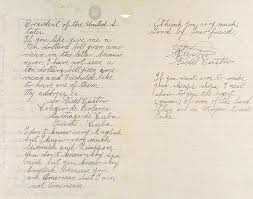 President of the United S
tates.
If you like, give me a
ten dollars bill green ame
rican, in the letter, because
never, I have not seen a
ten dollars bill green ame
rican and I would like
to have one of them.
My address is:
Sr. Fidel Castro
Colegio de Dolores
Santiago de Cuba
Oriente Cuba
I don't know very English
but I know very much
Spanish and I suppose
you don't know very Spa
nish but you know very
English because you
are American but I am
not American.
Thank you very much
Good by. Your friend,
Fidel Castro
If you want iron to make
your ships I will
show to you the
of iron of the land
They are in Mayari Oriente
Cuba.